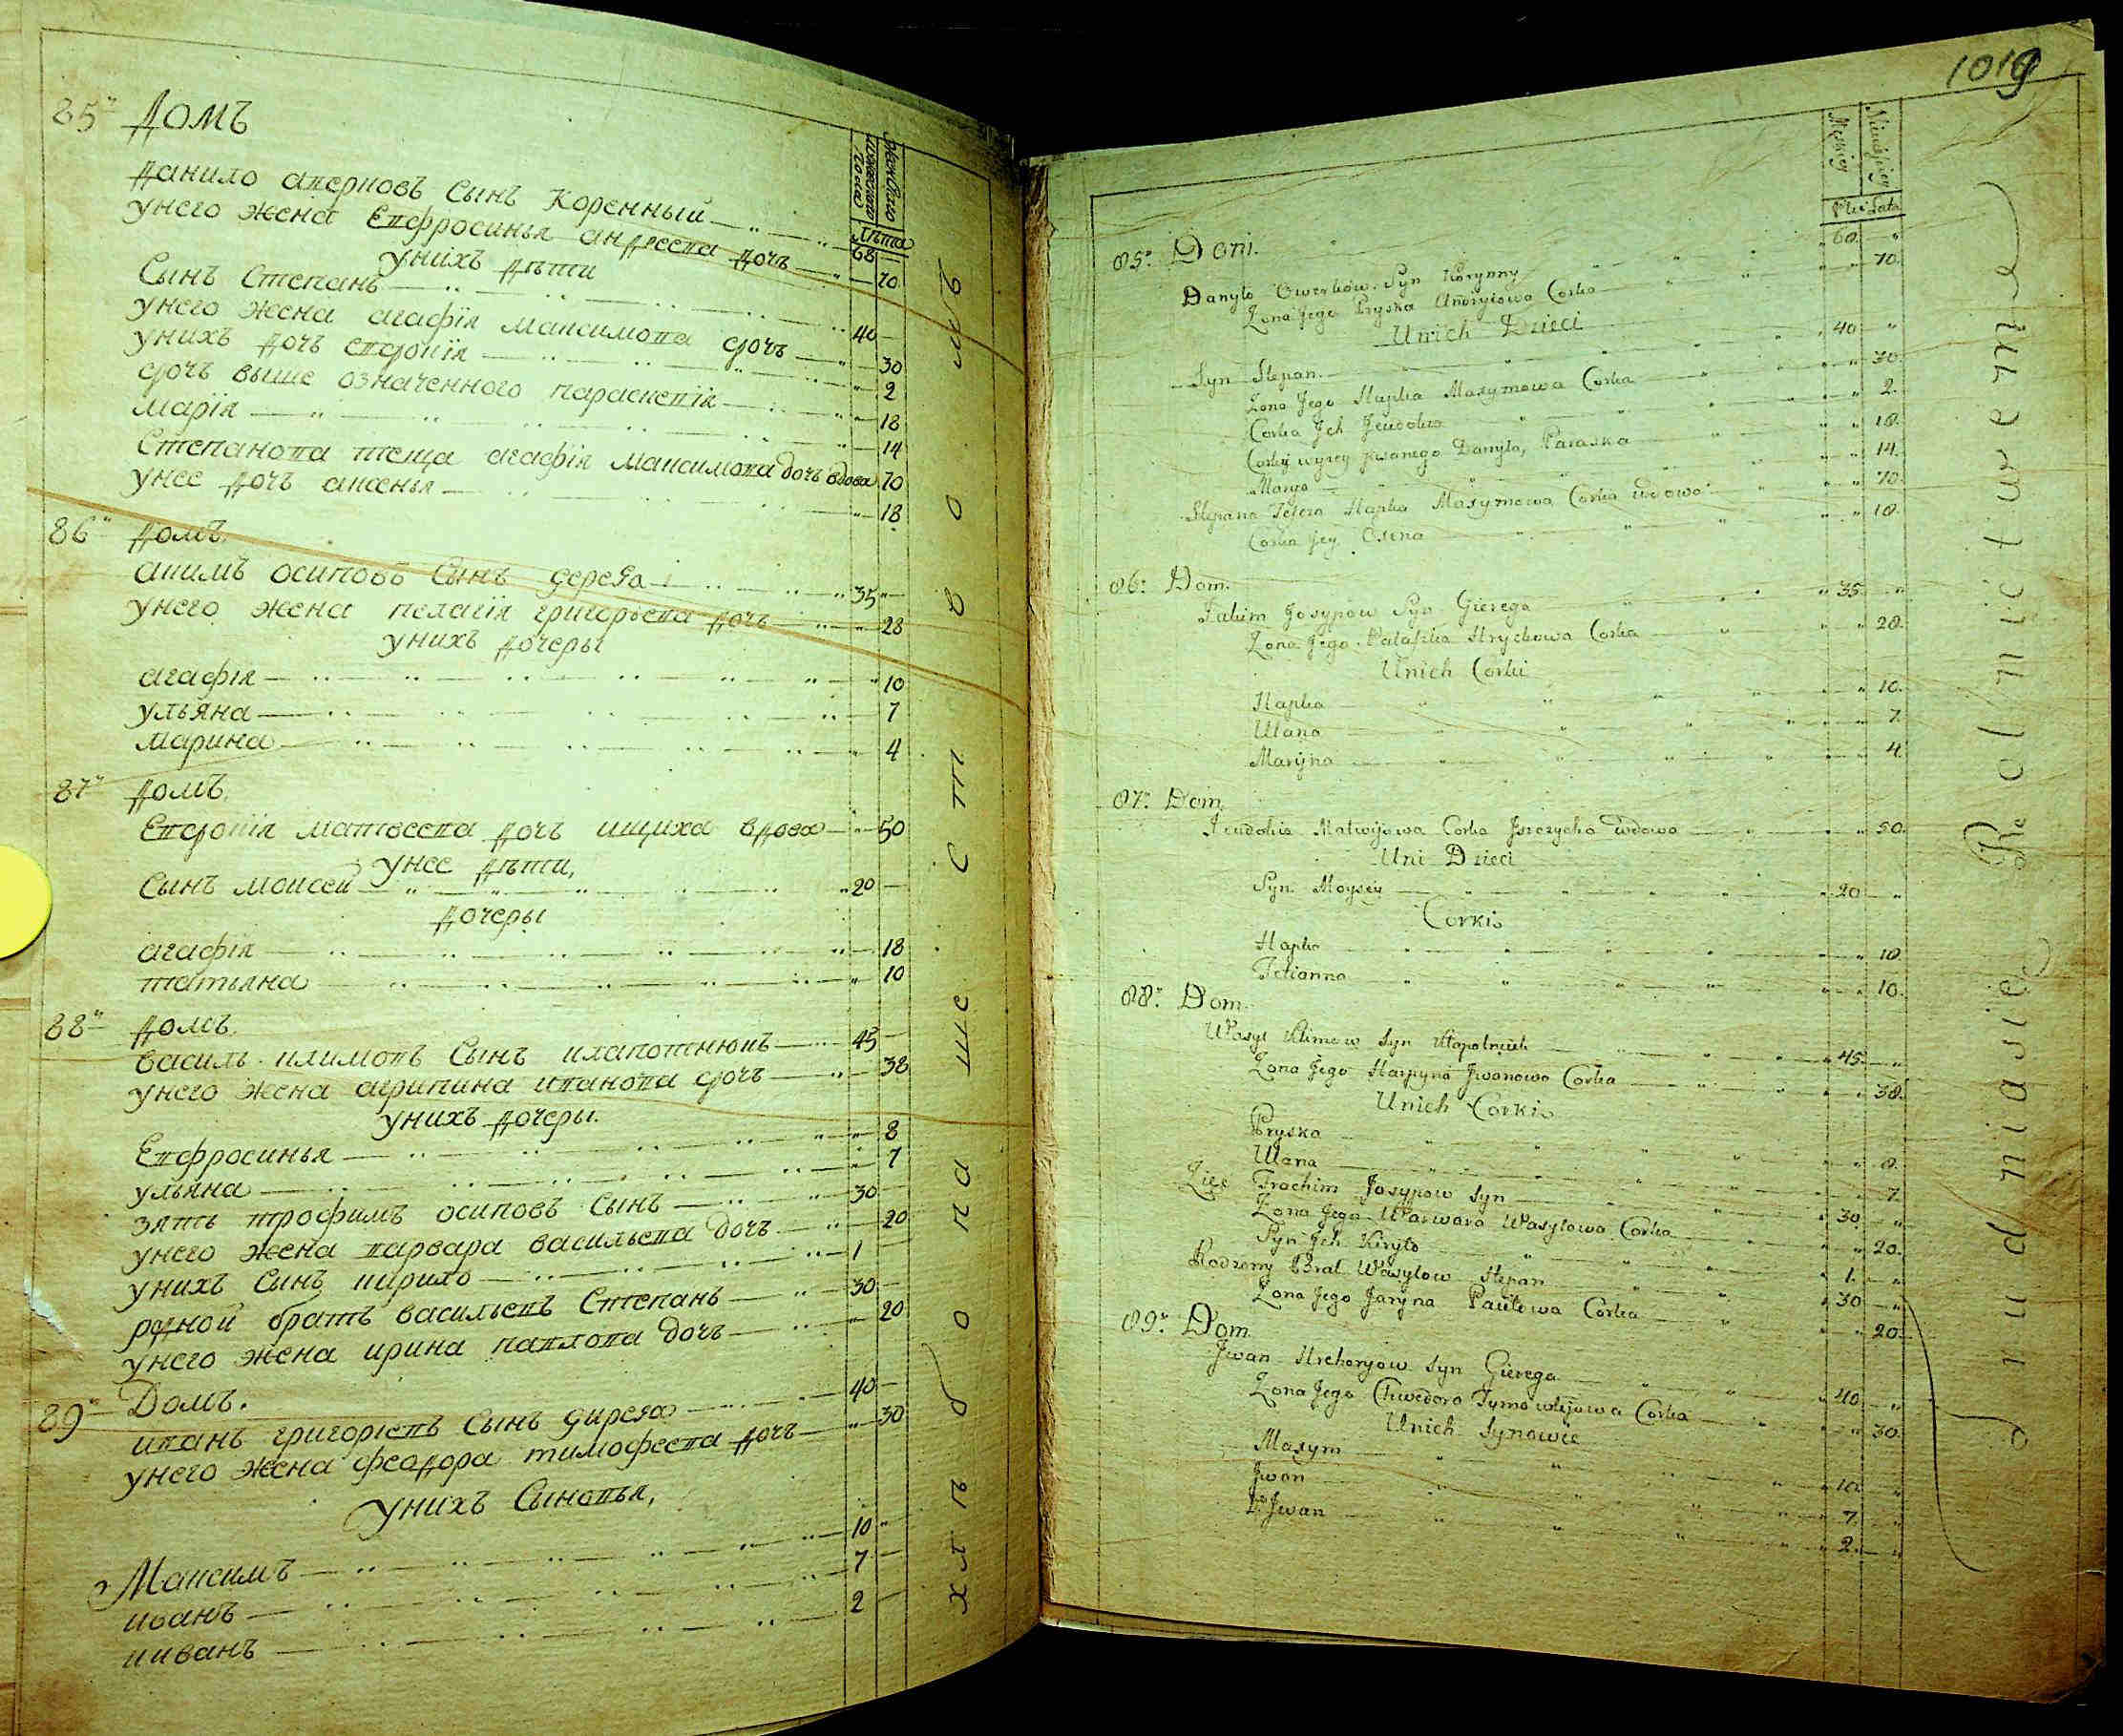 85 Домъ
женскаго
мужескаго
пола
лѣта
данило аверковъ сынъ Коренный 68
унего жена Евфросинья андреева дочь 70
унихъ дѣти
Сынъ Степанъ 40
унего жена агафія максимова дочь 30
унихъ дочь евдокія 2
дочь выше означенного параскевія 18
марія 14
Степанова теща агафія максимова дочь вдова 70
унее дочь аксенья 18
86 домъ
акимъ осиповъ сынъ дерега 35
унего жена пелагія григорьева дочь 28
унихъ дочеры
агафія 10
ульяна 7
марина 4
87 домъ
Евдокія матвеева дочь ищиха вдова 50
унее дѣти,
сынъ моисей 20
дочеры
агафія 18
татьяна 10
88 домъ
василь климовъ сынъ клапотнюкъ 45
унего жена агрипина иванова дочь 38
унихъ дочеры.
Евфросинья 8
ульяна 7
зять трофимъ осиповъ сынъ 30
унего жена варвара васильева дочь 20
унихъ сынъ кирило 1
родной братъ васильевъ Степанъ 30
унего жена ирина павлова дочь 20
89 Домъ.
иванъ григоріевъ сынъ дирега 40
унего жена феодора тимофеева дочь 30
унихъ Сыновья,
Максимъ 10
иванъ 7
ииванъ 2
хлѣбопашество
1019
Męskiey
Niewieściey
Płci Lata
85. Dom.
Danyło Owerkow Syn Korynny 60
Zona Jego Pryska Andryiowa Corka 70
Unich Dzieci
Syn Stepan 40
Zona Jego Hapka Maxymowa Corka 30
Corka Jch Jeudokia 2
Corka wyzey pisanego Danyła, Paraska 18
Marya 14
Stepana Tescza Hapka Maxymowa Corka wdowa 70
Corka Jey Oxena 18
86. Dom.
Jakim Josypow Syn Gierega 35
Zona Jego Palaszka Hrychowa Corka 28
Unich Corki
Hapka 10
Ulana 7
Maryna 4
87. Dom.
Jeudokia Matwijowa Corka Jszczycha wdowa 50
Uni Dzieci
Syn Moysey 20
Corki
Hapka 18
Tetianna 10
88. Dom
Wasyl Klimow Syn Kłapotniuk 45
Zona Jego Harpyna Jwanowa Corka 38
Unich Corki
Pryska 8
Ulana 7
Zięć Trochim Josypow Syn 30
Zona Jego Warwara Wasylowa Corka 20
Syn Jch Kiryło 1
Rodzony Brat Wasylow Stepan 30
Zona Jego Jaryna Pawłowa Corka 20
89. Dom
Jwan Hrehoryow Syn Gierega 40
Zona Jego Chwedora Tymofiejowa Corka 30
Unich Synowie
Maxym 10
Jwan 7
2 Jwan 2
Trudniasię Rolnictwem